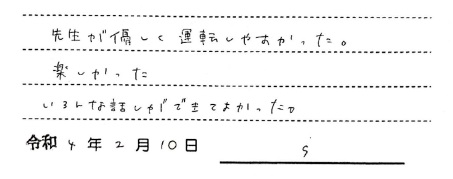 先生が優しく運転しやすかった。
楽しかった
いろんな話しができてよかったです
令和4年2月10日 S